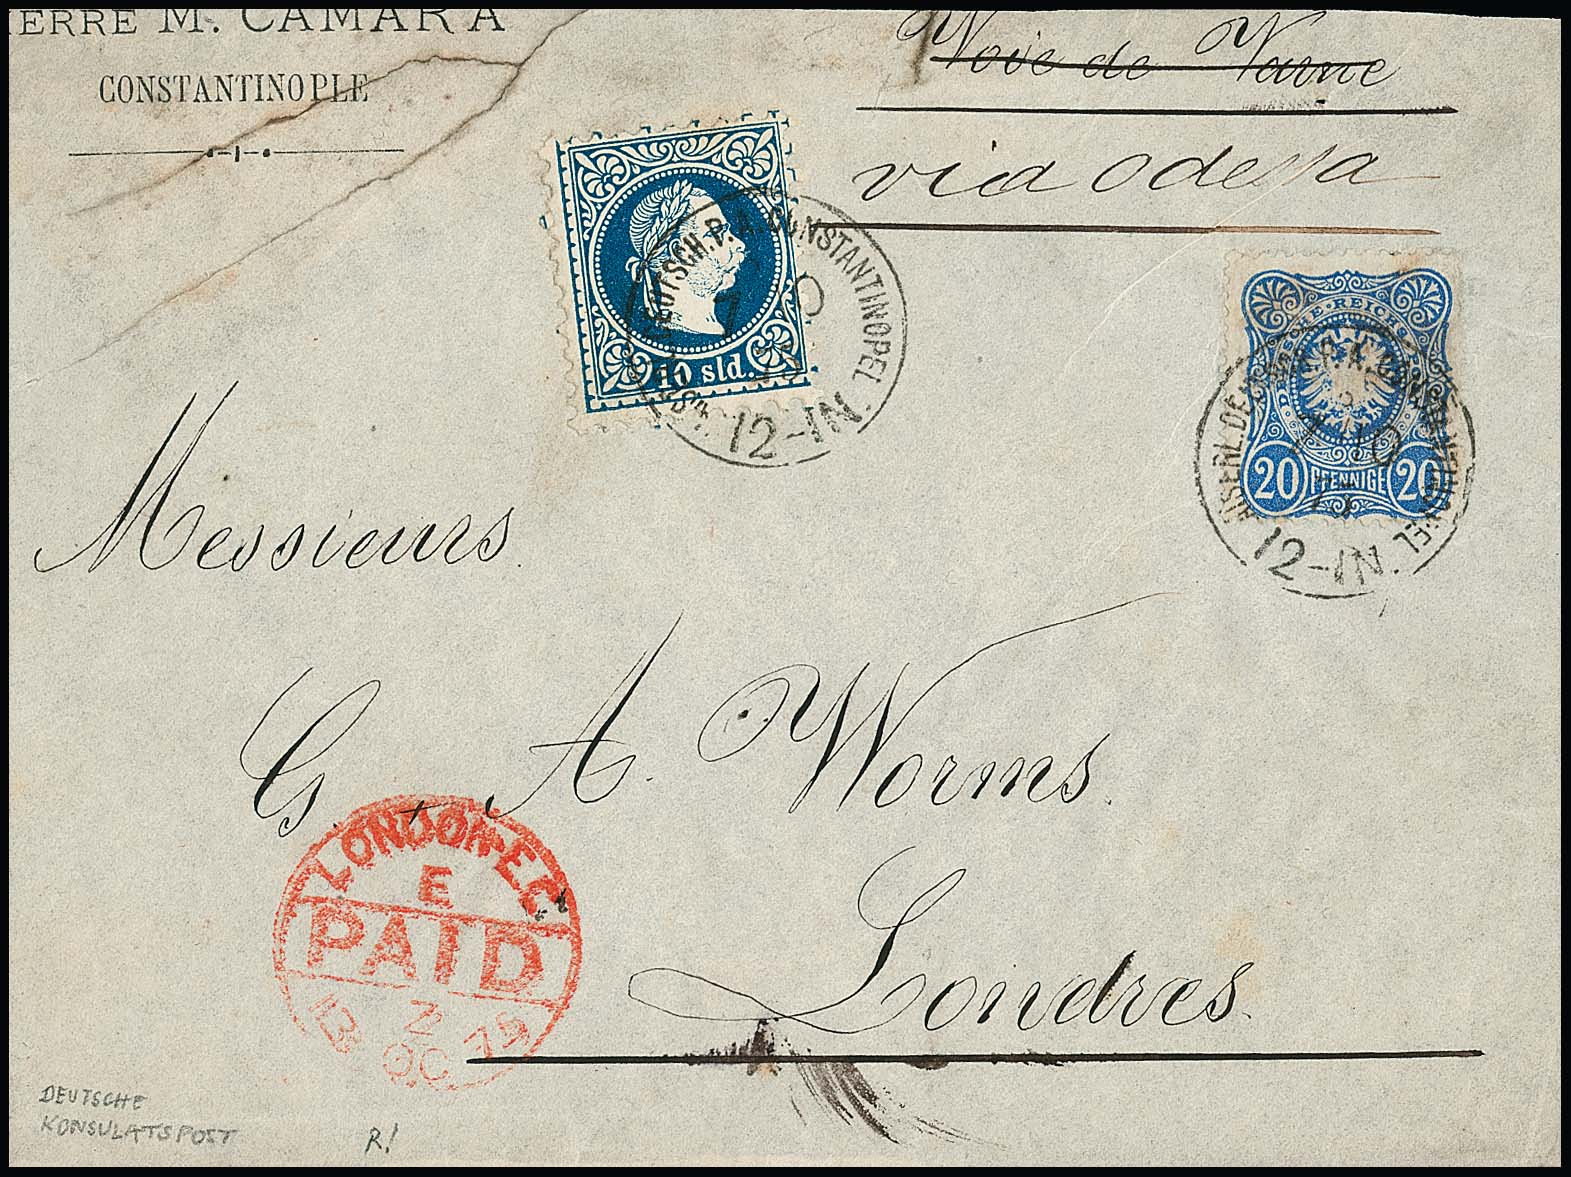 IERRE M. CAMARA
CONSTANTINOPLE
Voie de Varne
via Odessa
10 sld.
DEUTSCH. P. A. CONSTANTINOPEL
7 10
75
12-1N.
DEUTSCHE REICHS
20 PFENNIGE 20
12-1N.
Messieurs
G. A. Worms.
Londres.
LONDON-EC
E
PAID
Z
13 OC 75
DEUTSCHE
KONSULATSPOST
R!